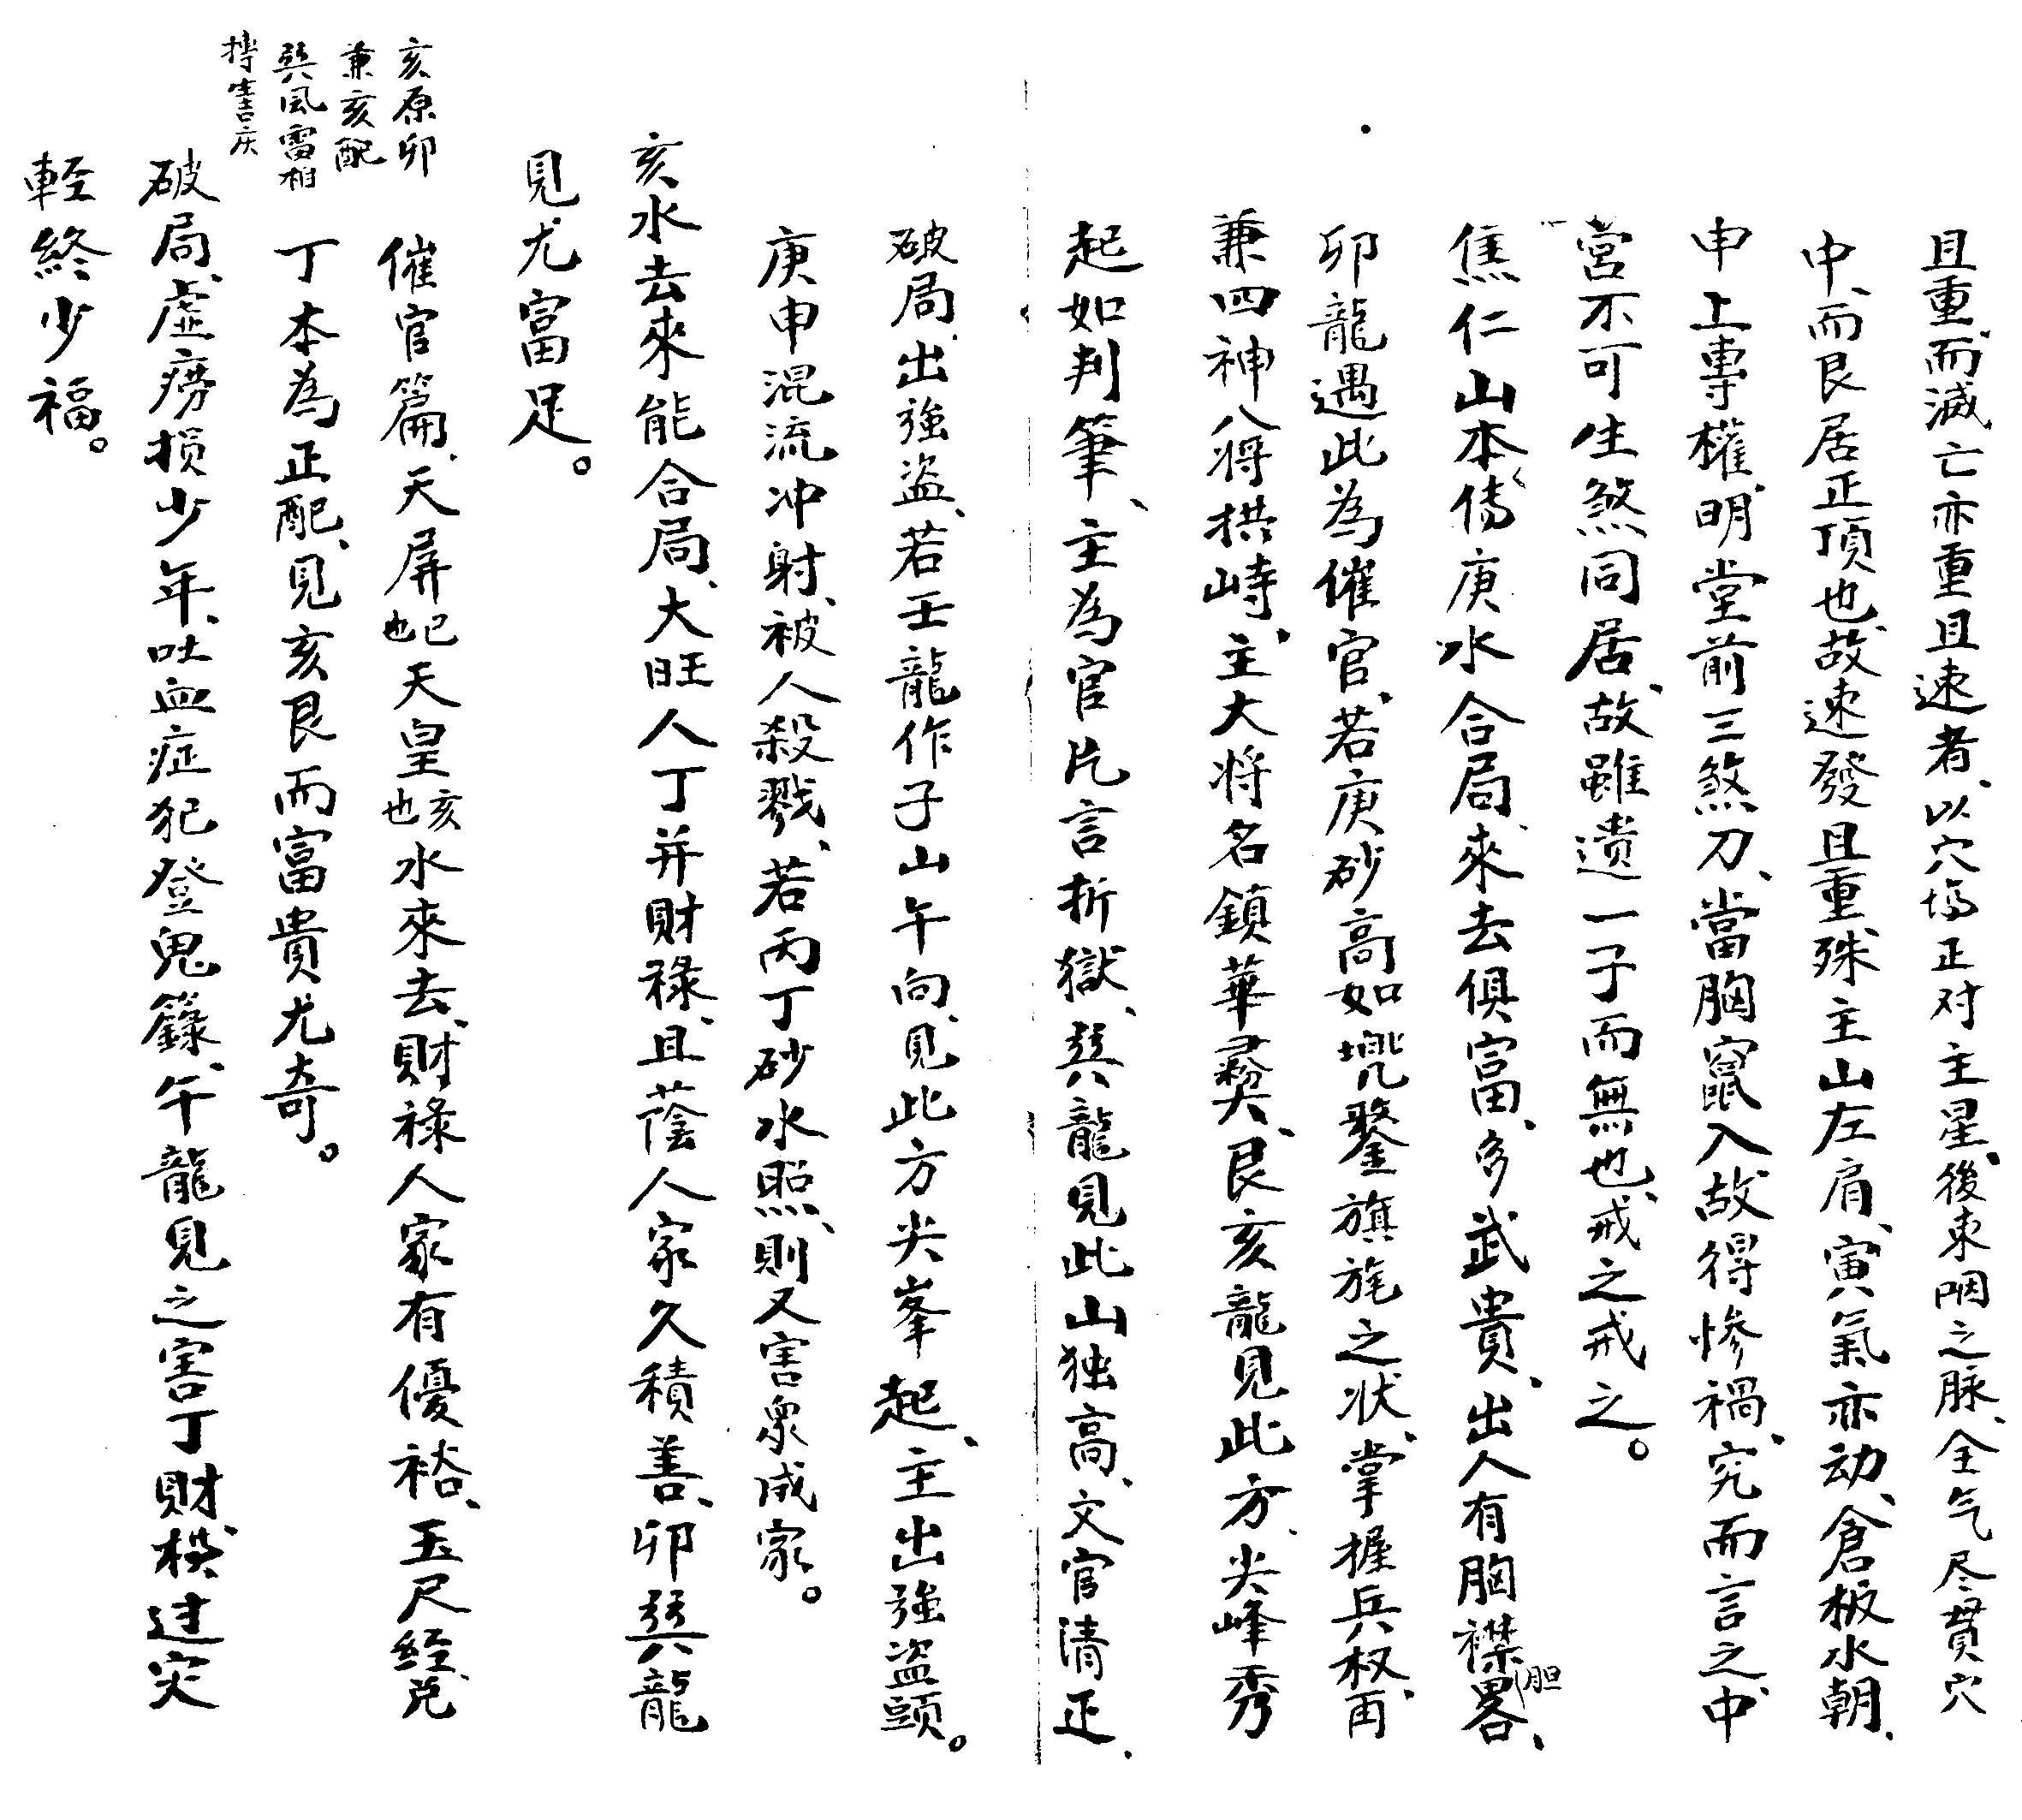 且重、而滅亡亦重且速者、以穴塲正对主星、後束咽之脉、全气尽貫穴
中、而艮居正頂也、故速發且重、殊主山左肩、寅氣亦动、倉板水朝、
申上專權、明堂前三煞刀、當胸竄入、故得惨禍、究而言之、中
宮不可生煞同居、故雖遗一子而無也、戒之戒之。
焦仁山本傳、庚水合局、來去俱富、多武貴、出人有胸襟胆畧、
卯龍遇此為催官、若庚砂高如兠鍪旗旄之状、掌握兵权、再
兼四神八將拱峙、主大将名鎮華彛、艮亥龍見此方、尖峰秀
起如判筆、主為官片言折獄、巽龍見此山独高、文官清正、
破局、出強盗、若壬龍作子山午向、見此方尖峯起、主出強盗頭。
庚申混流冲射、被人殺戮、若丙丁砂水照、則又害衆成家。
亥水去來能合局、大旺人丁并財禄、且蔭人家久積善、卯巽龍
見尤富足。
催官篇、天屏巳也天皇亥也水來去、財禄人家有優裕、玉尺經、兑
丁本為正配、見亥艮而富貴尤奇。
破局、虚痨损少年、吐血症犯登鬼籙、午龍見之害丁財、横过灾
輕終少福。
亥原卯
兼亥配
巽風雷相